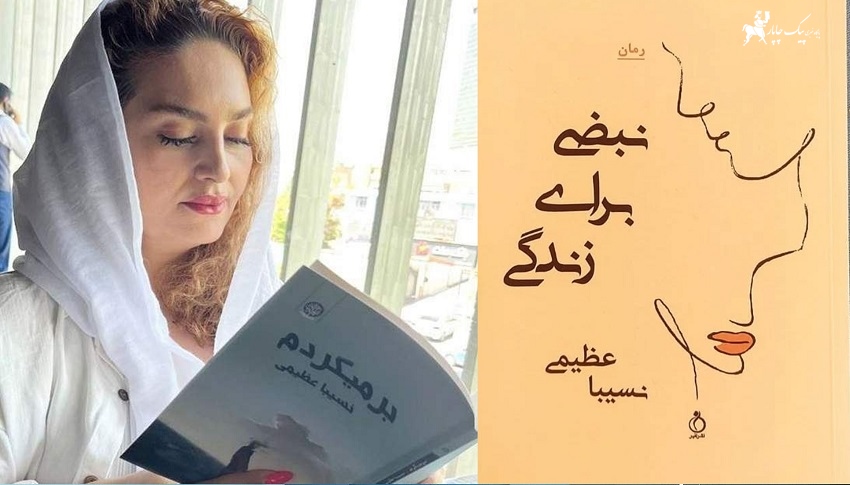 رمان
نبضی
برای
زندگی
عظیمی
نسیبا
برمیگردم
نسیبا عظیمی